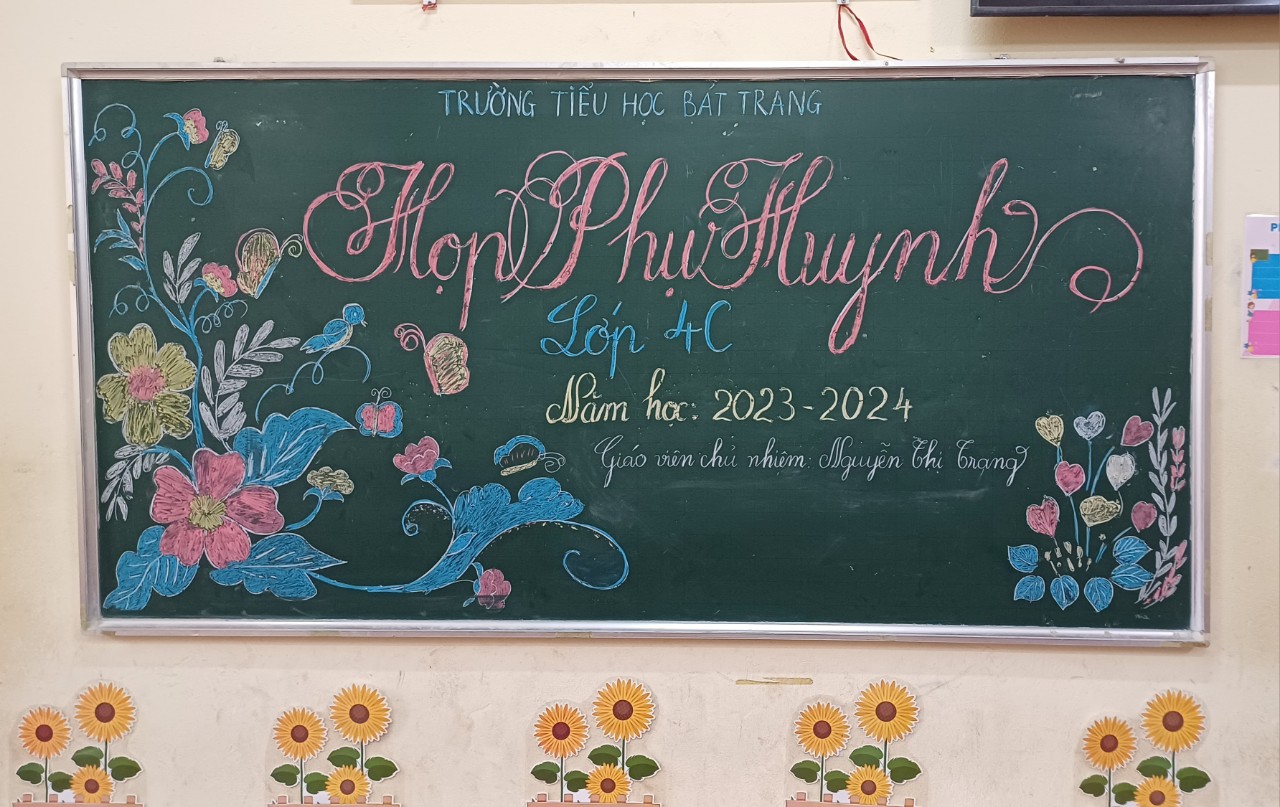 TRƯỜNG TIỂU HỌC BÁT TRANG
Họp Phụ Huynh
Lớp 4C
Năm học: 2023-2024
Giáo viên chủ nhiệm: Nguyễn Thị Trang